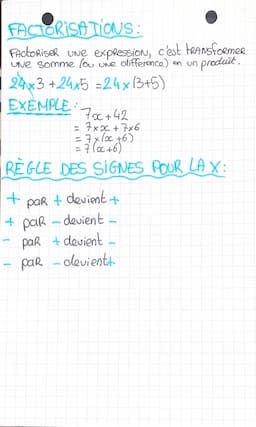 FACTORISATIONS:
FACTORISER UNE EXPRESSION, c'est TRANSFORMER
UNE SOMME (ou une différence) en un produit.
24x3 + 24x5 = 24x(3+5)
EXEMPLE:
7x + 42
= 7 x x + 7x6
= 7 x (x + 6)
= 7 (x+6)
RÈGLE DES SIGNES POUR LA X:
+ paR + devient +
+ paR - devient -
- paR + devient -
- paR - devient +